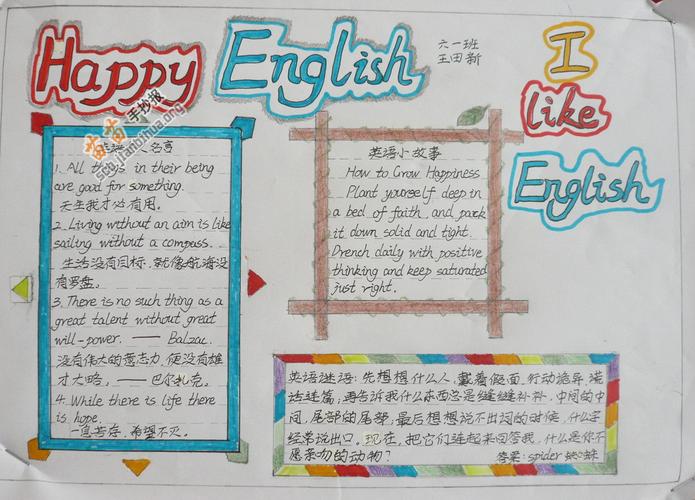 Happy English
六一班
王田新
I
like
English
苗苗手抄报
scb.jianbihua.org
名言
1. All things in their being
are good for something.
天生我才必有用。
2. Living without an aim is like
sailing without a compass.
生活没有目标，就像航海没
有罗盘。
3. There is no such thing as a
great talent without great
will-power. —— Balzac.
没有伟大的意志力，便没有雄
才大略。——巴尔扎克。
4. While there is life there
is hope.
一息若存，希望不灭。
英语小故事
How to Grow Happiness
Plant yourself deep in
a bed of faith, and pack
it down solid and tight.
Drench daily with positive
thinking and keep saturated
just right.
英语谜语：先想想什么人，戴着假面，行动诡异，谎
话连篇，再告诉我什么东西总是缝缝补补，中间的中
间，尾部的尾部，最后想想说不出词的时候，什么字
经常说出口。现在，把它们连起来回答我，什么是你不
愿亲吻的动物？
答案：spider 蜘蛛